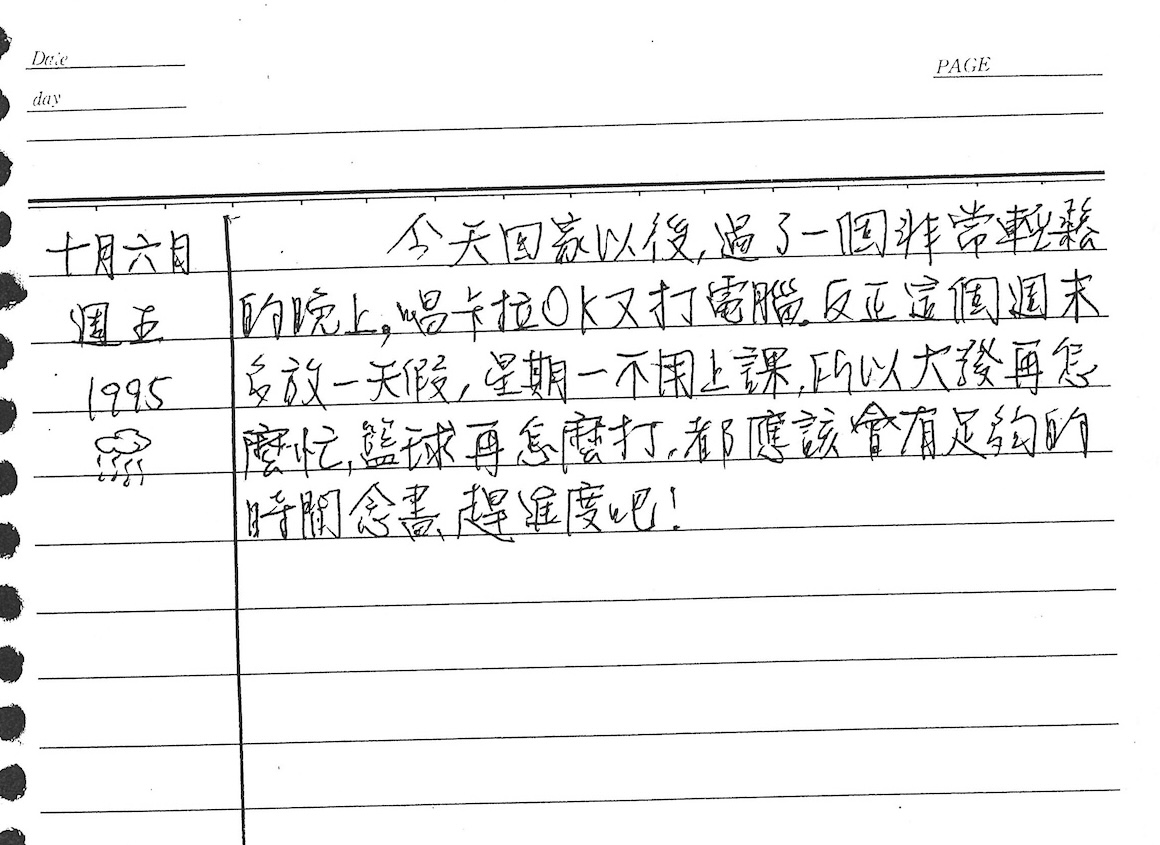 Date
day
PAGE
十月六日
週五
1995
今天回家以後,過了一個非常輕鬆
的晚上,唱卡拉OK又打電腦.反正這個週末
多放一天假,星期一不用上課,所以大發再怎
麼忙,籃球再怎麼打,都應該會有足夠的
時間念書、趕進度吧!